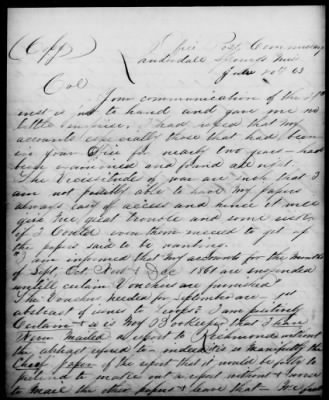 (Copy) Office Post Commissary
Lauderdale Springs Miss
July 20th 63
Col
Your communication of the
inst is just to hand and gave me no
little surprise. I had hoped that my
accounts especially those that had been
in your Office for nearly two years had
been examined and found all right.
The vicissitudes of war are such that I
am not possibly able to have my papers
always easy of access and hence it will
give me great trouble and some
if I could even then succeed to get up
the papers said to be wanting.
I am informed that my accounts for the months
of Sept Oct Nov & Dec 1861 are suspended
untill certain Vouchers are furnished
The Vouchers needed for September are
abstract of issues to troops. I am positively
Certain & so is my Bookkeeper that I have
never mailed a report to Richmond without
the abstract refered to indeed it is manifestly the
Chief paper of the report that it would be folly to
pretend to make out a report without & even
to mail the other papers & leave that